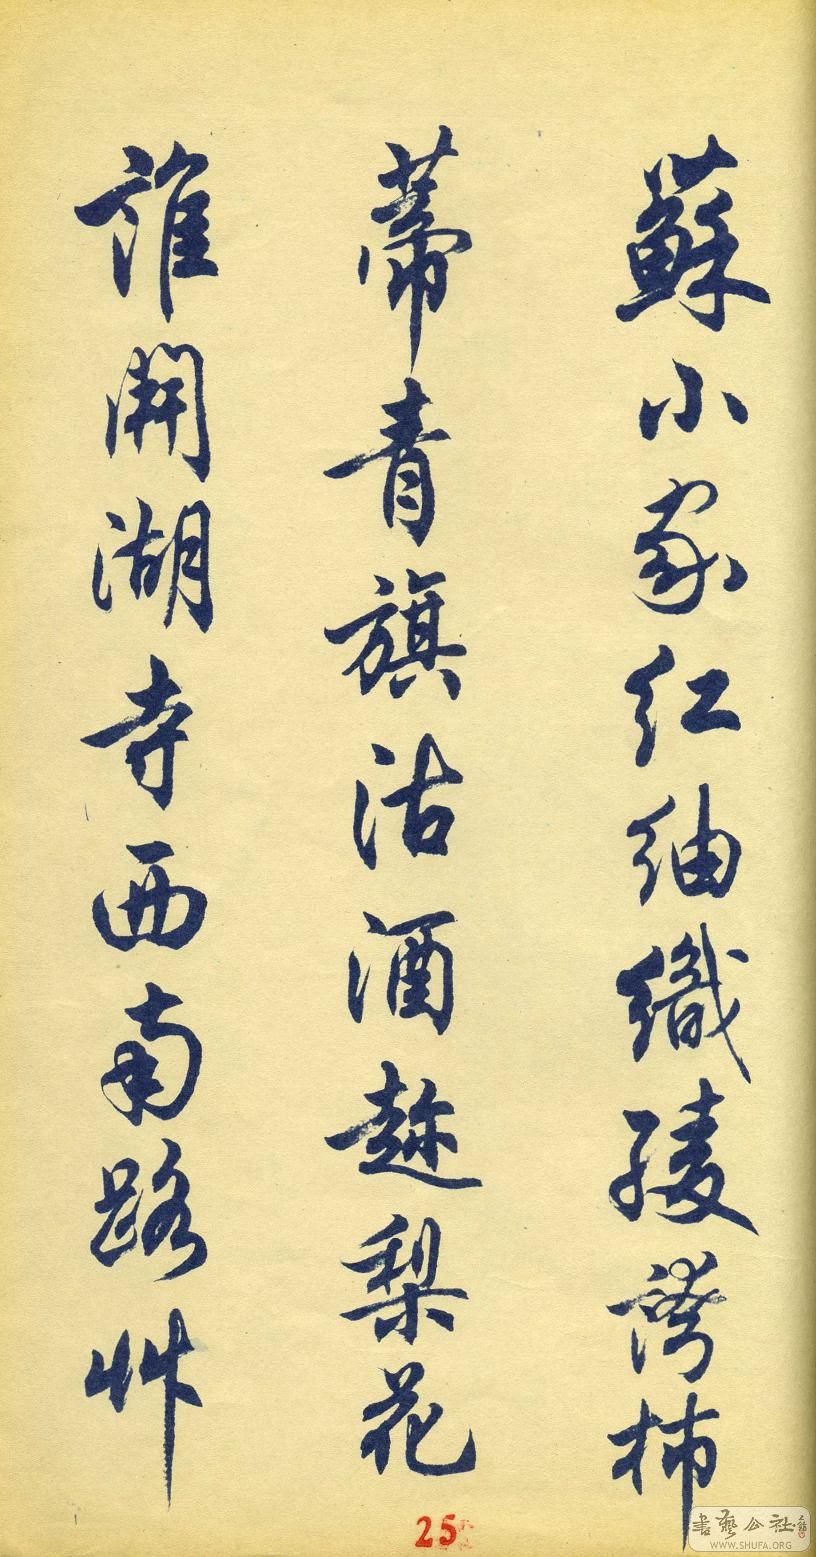 蘇小家紅紬織綾誇柿
蒂青旗沽酒趂梨花
誰開湖寺西南路艸
25
書藝公社
WWW.SHUFA.ORG